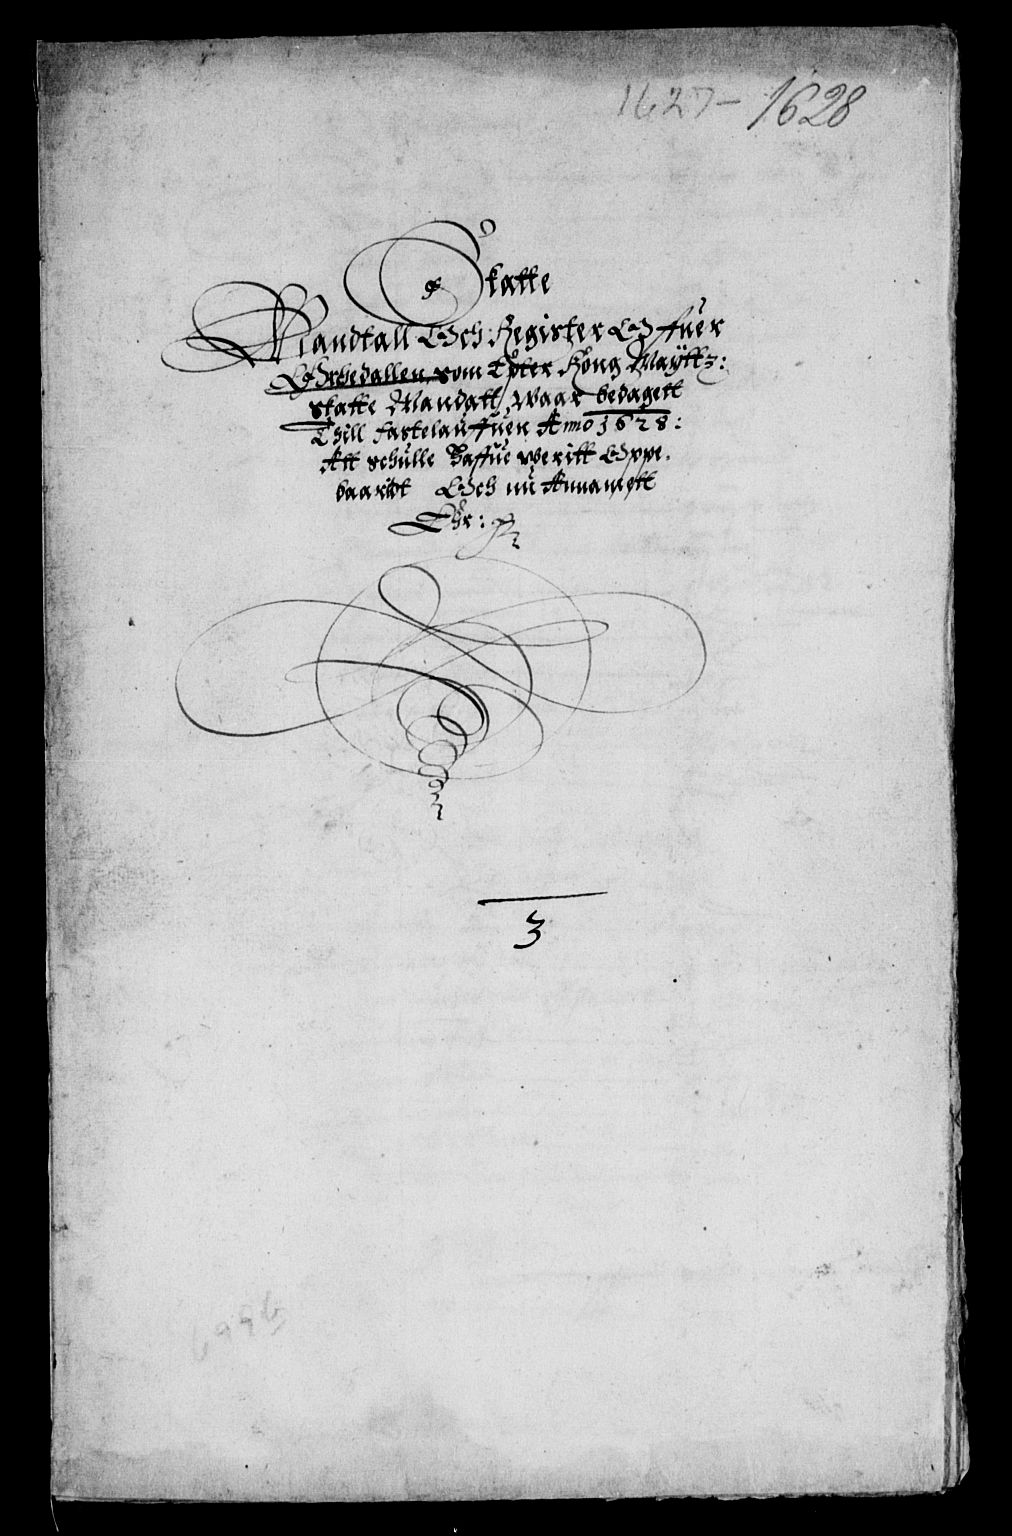 1627 - 1628
Skatte
Mandtall Och Register Offuer
Orchedallen som epter Kong Maÿttz:
skatte Mandatt, waar bedagett
Thill fastelauffuen Anno 1628:
Att schulle haffue veritt Oppe.
baaridt Och nu Annamett
Etc:
3